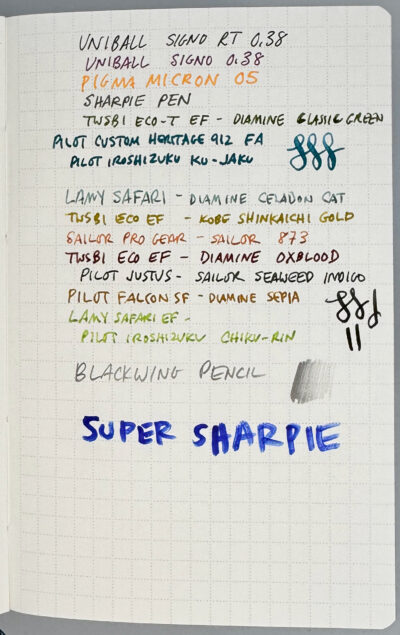 UNIBALL SIGNO RT 0.38
UNIBALL SIGNO 0.38
PIGMA MICRON 05
SHARPIE PEN
TWSBI ECO-T EF - DIAMINE CLASSIC GREEN
PILOT CUSTOM HERITAGE 912 FA
PILOT IROSHIZUKU KU-JAKU
LAMY SAFARI - DIAMINE CELADON CAT
TWSBI ECO EF - KOBE SHINKAICHI GOLD
SAILOR PRO GEAR - SAILOR 873
TWSBI ECO EF - DIAMINE OXBLOOD
PILOT JUSTUS - SAILOR SEAWEED INDIGO
PILOT FALCON SF - DIAMINE SEPIA
LAMY SAFARI EF -
PILOT IROSHIZUKU CHIKU-RIN
BLACKWING PENCIL
SUPER SHARPIE